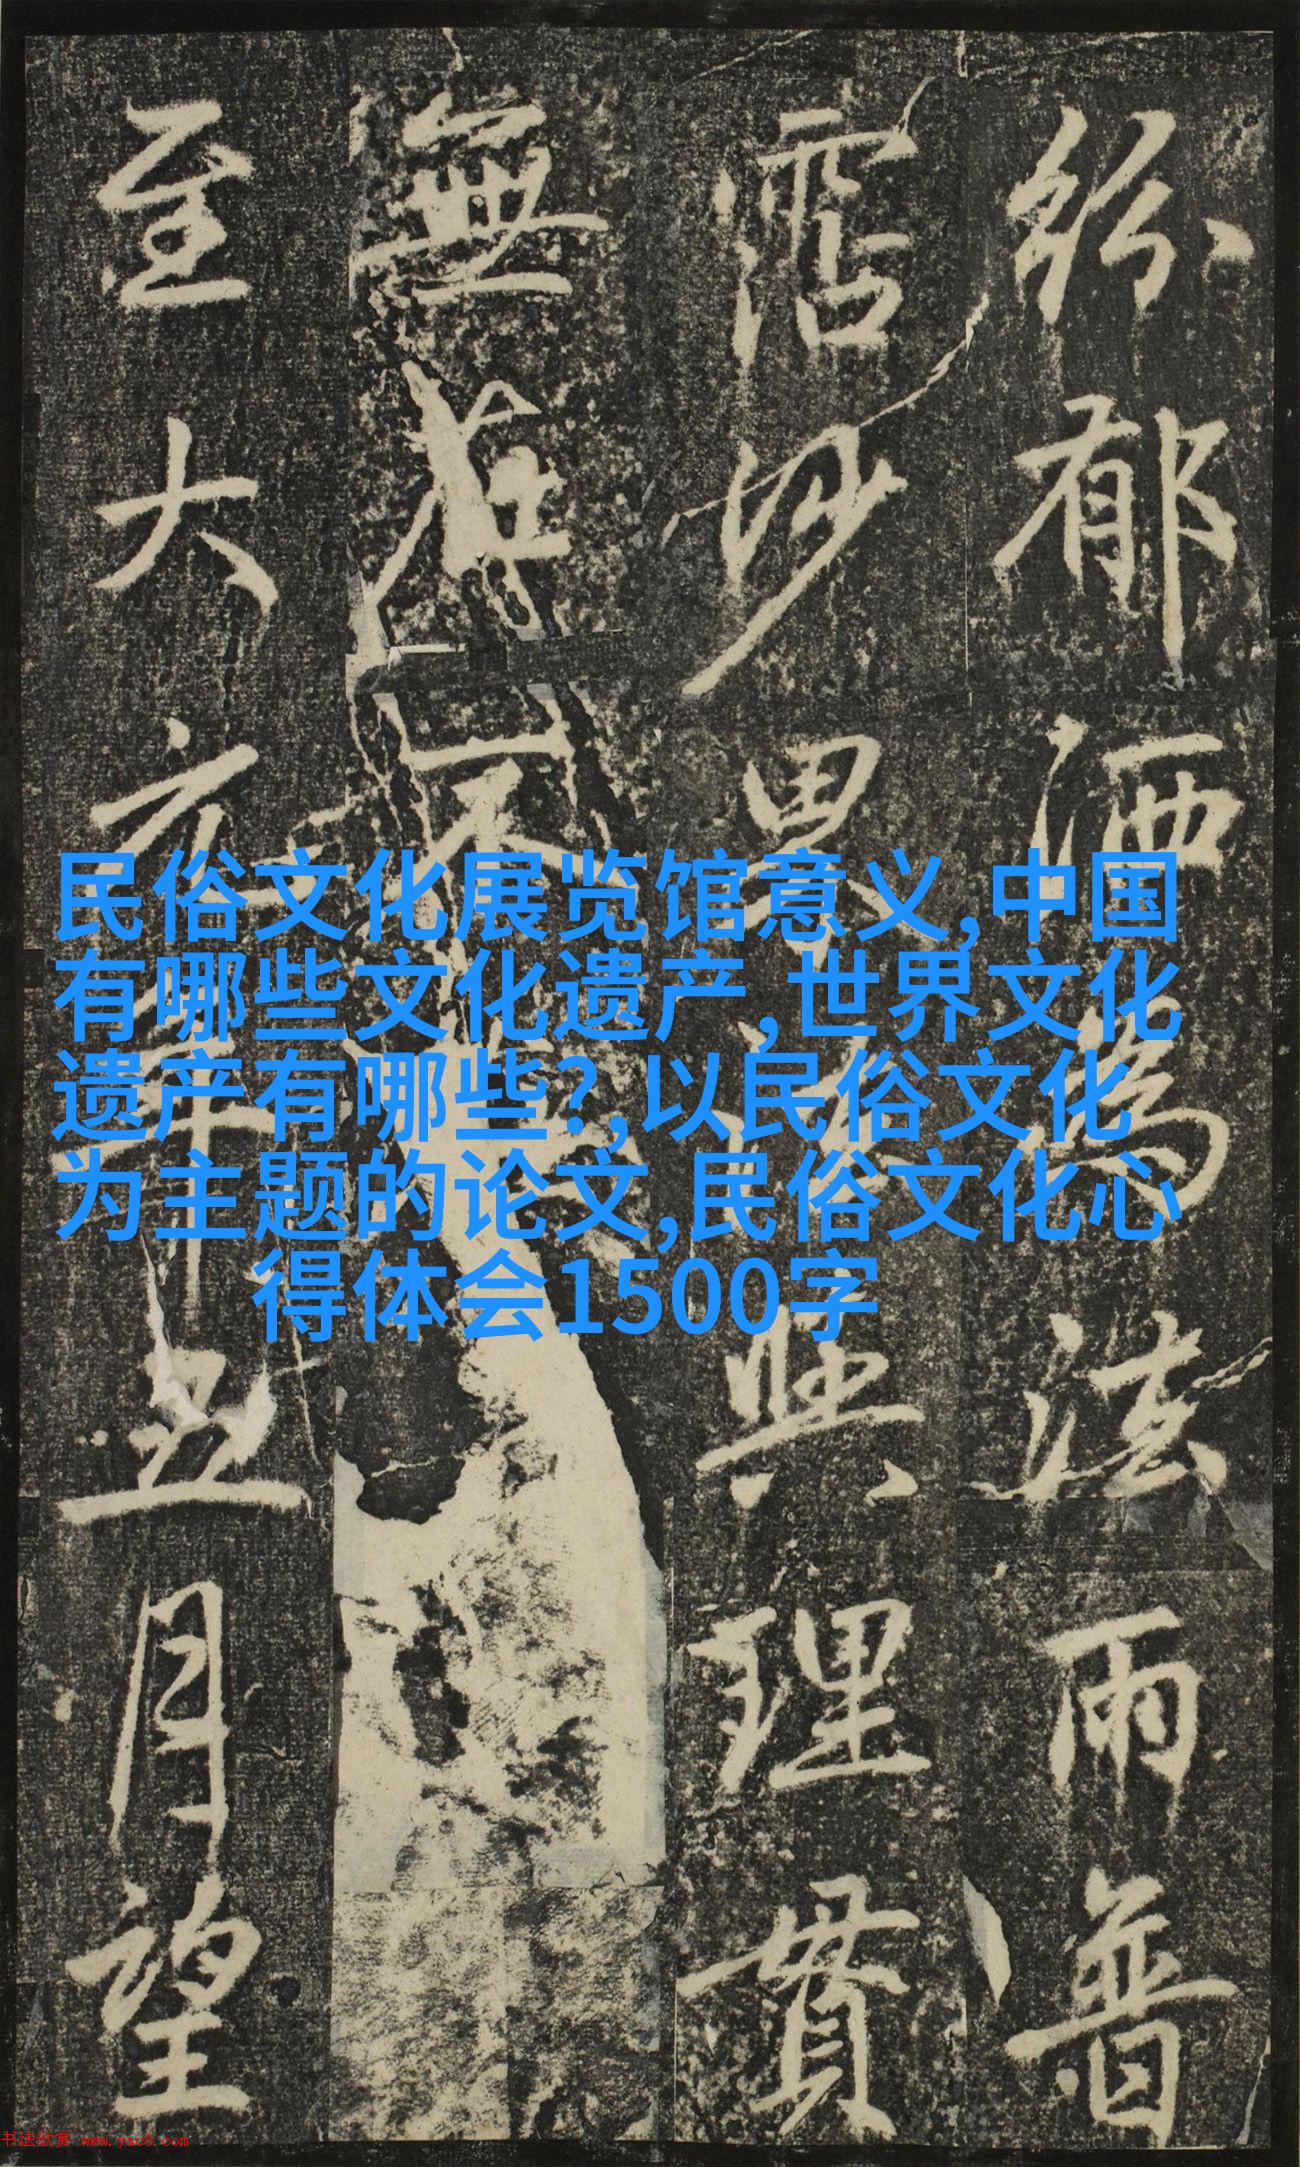 紛郁洒為法雨普
霑妙理貫
無
至大年五月望
民俗文化展览馆意义,中国
有哪些文化遗产,世界文化
遗产有哪些?,以民俗文化
为主题的论文,民俗文化心
得体会1500字
书法欣赏 www.yac8.com